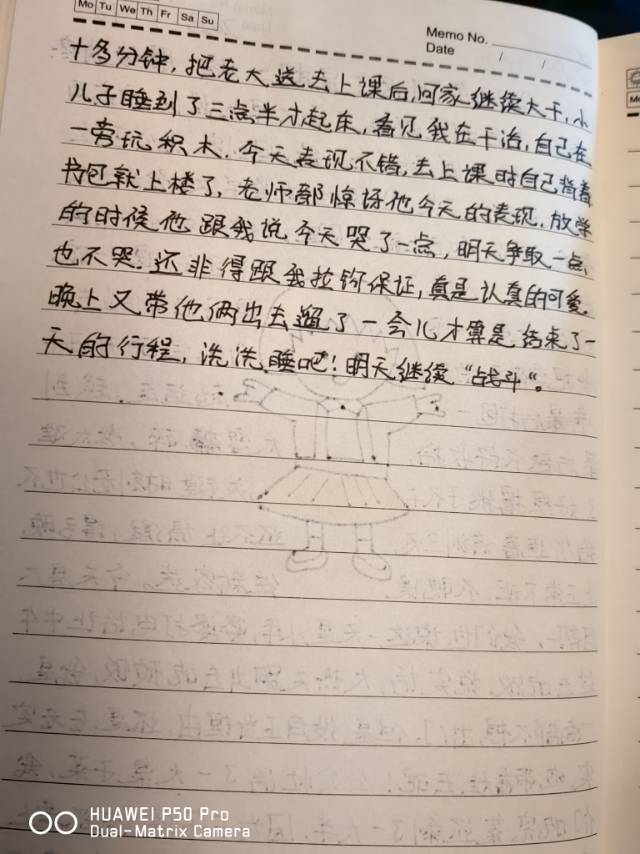 Mo Tu We Th Fr Sa Su
Memo No.
Date / /
十多分钟，把老大送去上课后，回家继续大干，小
儿子睡到了三点半才起床，看见我在干活，自己在
一旁玩积木．今天表现不错，去上课时自己背着
书包就上楼了，老师都惊讶他今天的表现．放学
的时候他跟我说今天哭了一点，明天争取一点
也不哭．还非得跟我拉钩保证，真是认真的可爱．
晚上又带他俩出去遛了一会儿才算是结束了一
天的行程，洗洗睡吧！明天继续“战斗”。
HUAWEI P50 Pro
Dual-Matrix Camera